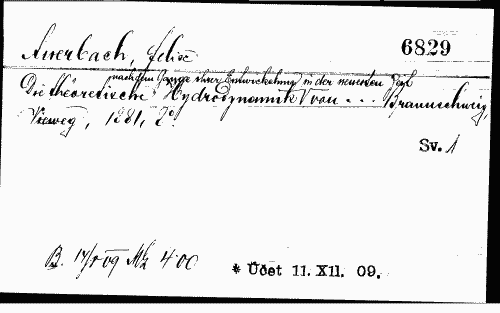 Auerbach, Felix
6829
nach dem Gange ihrer Entwickelung in der neuesten Zeit
Die theoretische Hydrodynamik von ... Braunschweig,
Vieweg, 1881, 2°.
Sv. 1
B. 14/ 09 Mk 4·00
* Účet 11. XII. 09.